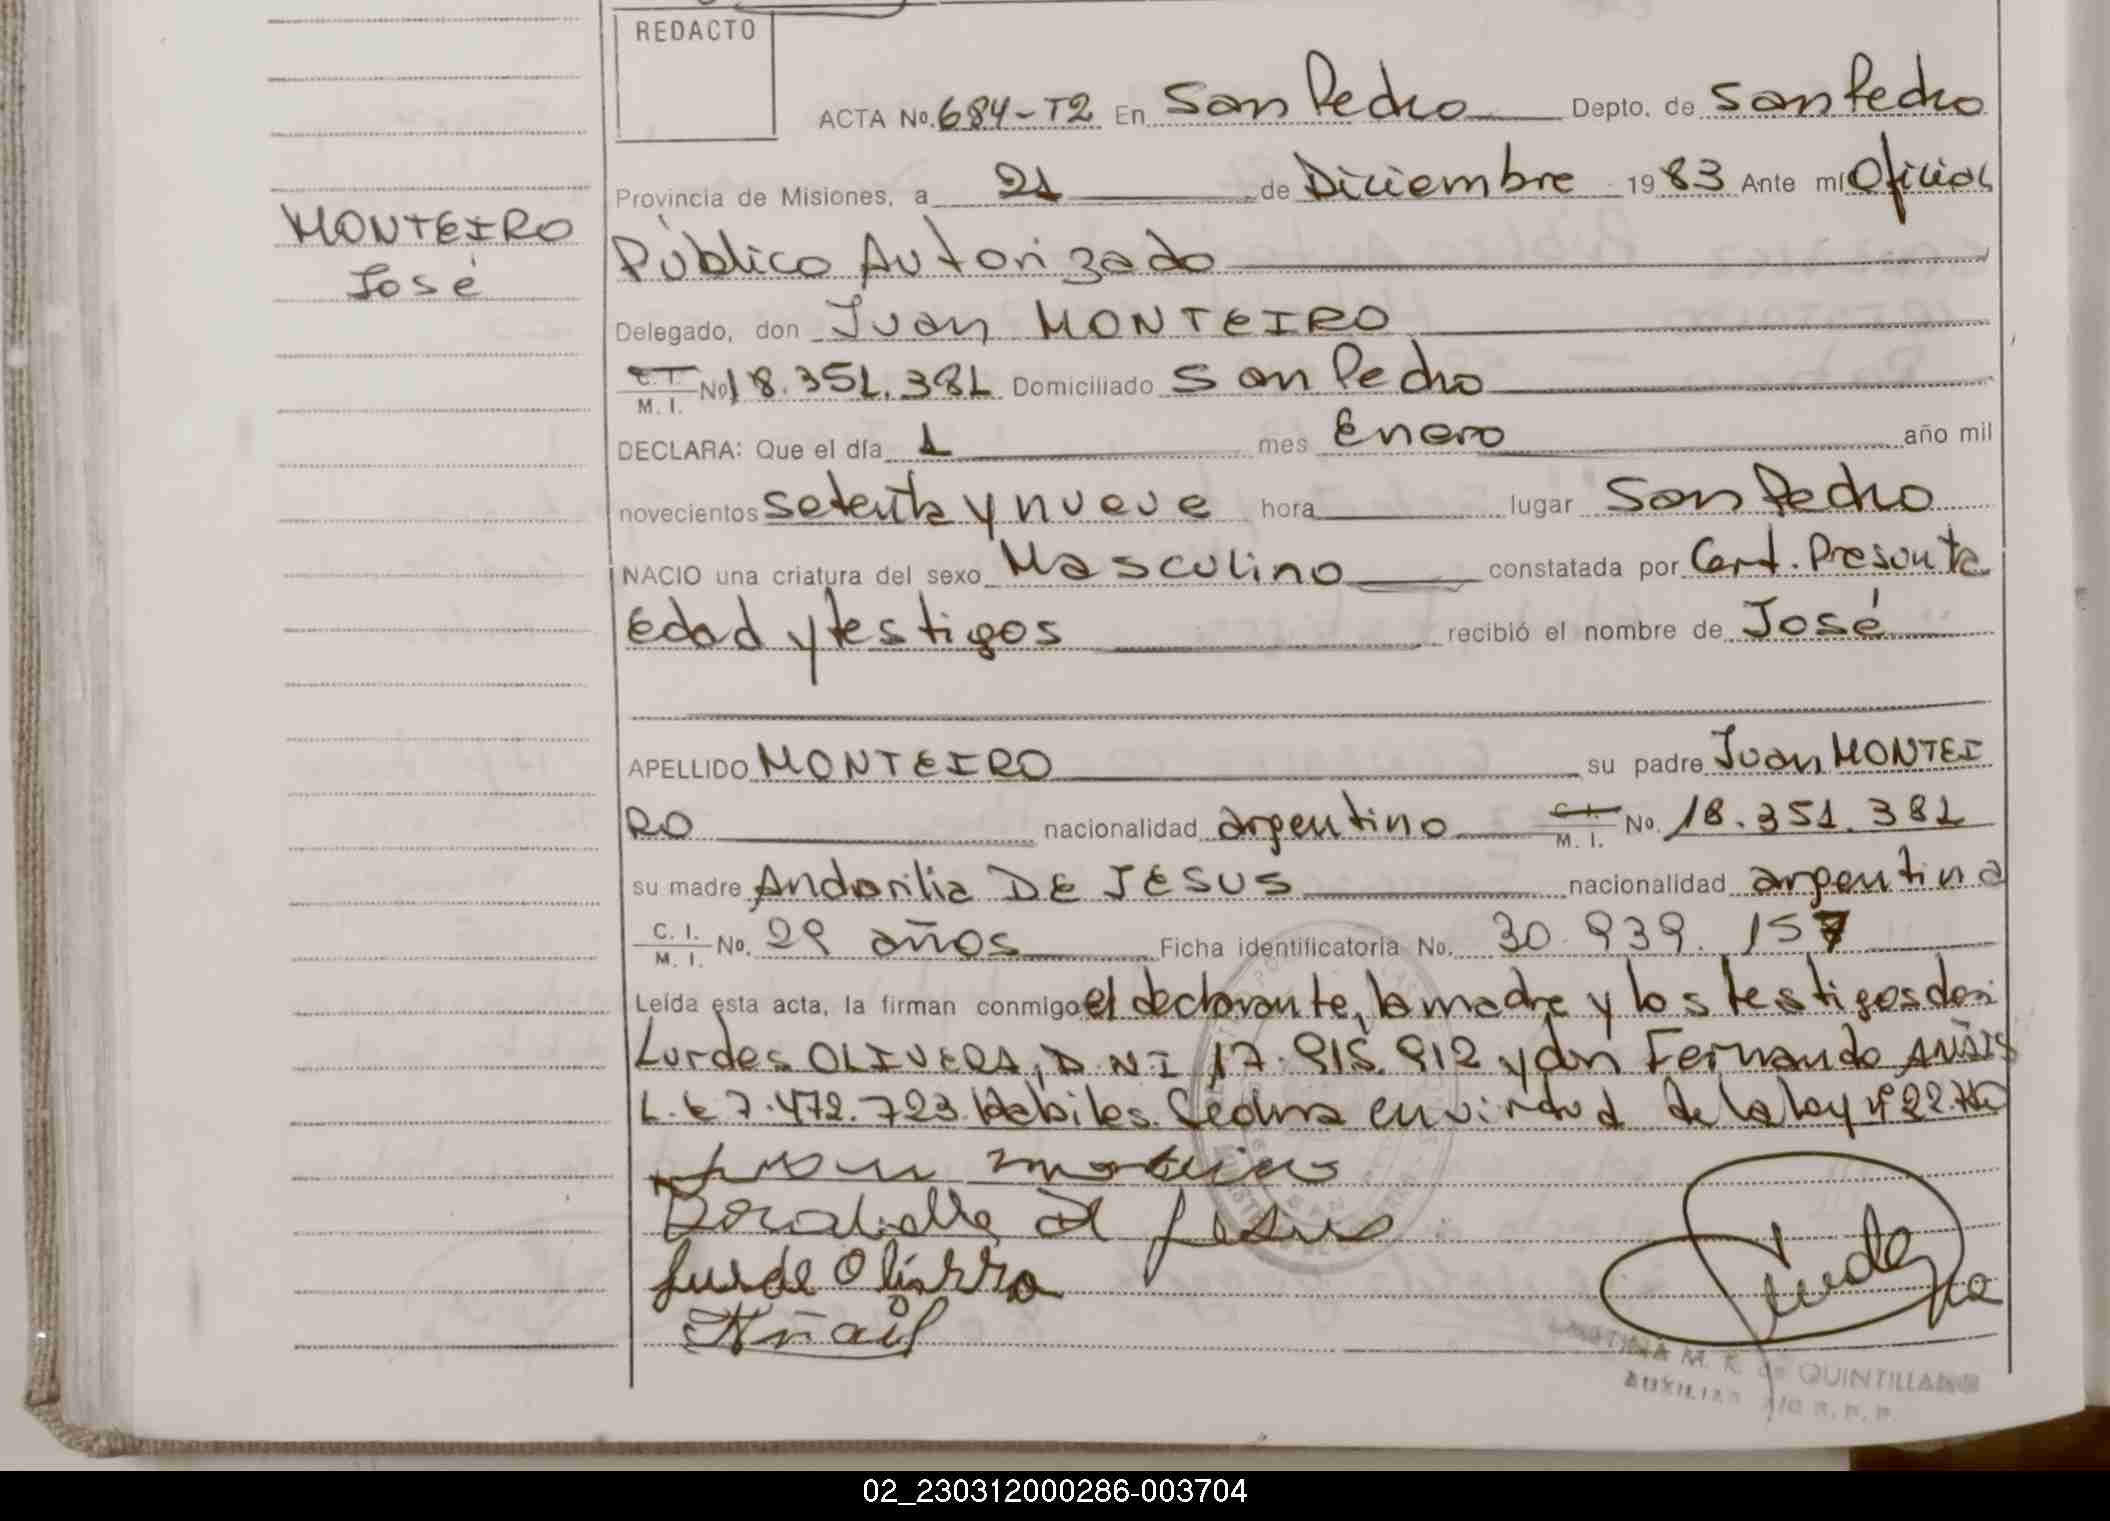 REDACTO
ACTA No. 684-T2 En San Pedro Depto. de San Pedro
Provincia de Misiones, a 21 de Diciembre 1983 Ante mí Oficial
MONTEIRO
José
Público Autorizado
Delegado, don Juan MONTEIRO
C.I. M. I. No 18.351.381 Domiciliado San Pedro
DECLARA: Que el día 1 mes Enero año mil
novecientos setenta y nueve hora lugar San Pedro
NACIO una criatura del sexo Masculino constatada por Cert. Presunta
edad y testigos recibió el nombre de José
APELLIDO MONTEIRO su padre Juan MONTEI
RO nacionalidad argentino C.I. M. I. No. 18.351.381
su madre Andorilia DE JESUS nacionalidad argentina
C. I. M. I. No. 29 años Ficha identificatoria No. 30.939.157
Leída esta acta, la firman conmigo el declarante, la madre y los testigos don
Lurdes OLIVERA, D.N.I 17.915.912 y don Fernando
L.E 7.472.723 Habiles. Cedma en virtud de la ley Nº 22.
de Jesus
QUINTILLANO
AUXILIAR
02_230312000286-003704